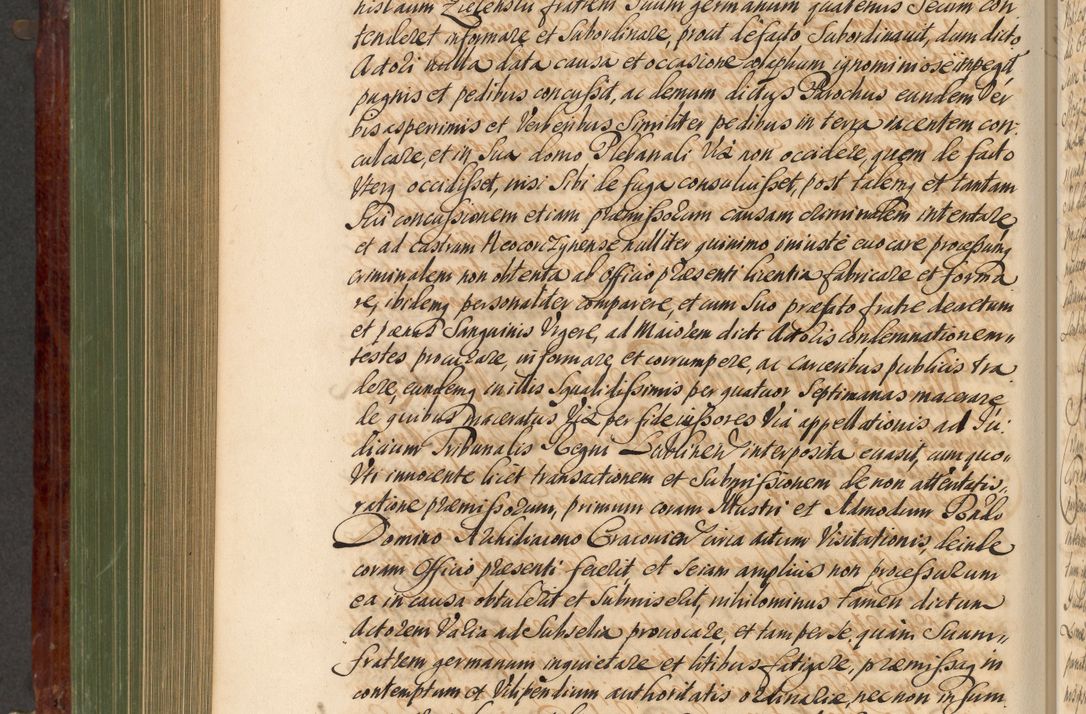 hislaum Zielenski fratrem suum germanum quatenus secum con
tenderet informare et subordinare, prout de facto subordinavit, dum dicto
Actori nulla data causa et occasione colaphum ignominiose impegit
pugnis et pedibus concussit, ac demum dictus Parochus eundem Ver
bis asperrimis et Verberibus similiter pedibus in terra iacentem con
culcare, et in sua domo Plebanali Vix non occidere, quem de facto
Vterq occidisset, nisi sibi de fuga consuluisset, post talemq et tantam
sui concussionem etiam præmissorum causam criminalem intentare
et ad castrum Neocorczynense nulliter quinimo iniuste euocare processumq
criminalem non obtenta ab Officio præsenti licentia fabricare et forma
re, ibidemq personaliter comparere, et cum suo præfato fratre de actum
et pænas Sanguinis Vigere, ad Maiorem dicti Actoris condemnationem
testes procurare, informare et corrumpere, ac carceribus publicis tra
dere, eundemq in illis squalidissimis per quatuor septimanas macerare
de quibus maceratus Vix per fideiussores Via appellationis ad Iu:
dicium Tribunalis Regni Lublinen interposita euasit, cum quo
Vti innocente licet transactionem et submissionem de non attentatis
ratione præmissorum, primum coram Illustri et Admodum Rndo
Domino Archidiacono Cracovien circa actum Visitationis, deinde
coram Officio præsenti fecerit, et seram amplius non processurum
ea in causa obtulerit et submiserit, nihilominus tamen dictum
Actorem Varia ad Subselia prouocare, et tam per se, quam suum
fratrem germanum inquietare et litibus fatigare, præmissaq in
contemptum et Vilipendium authoritatis ordinariæ, nec non in sum